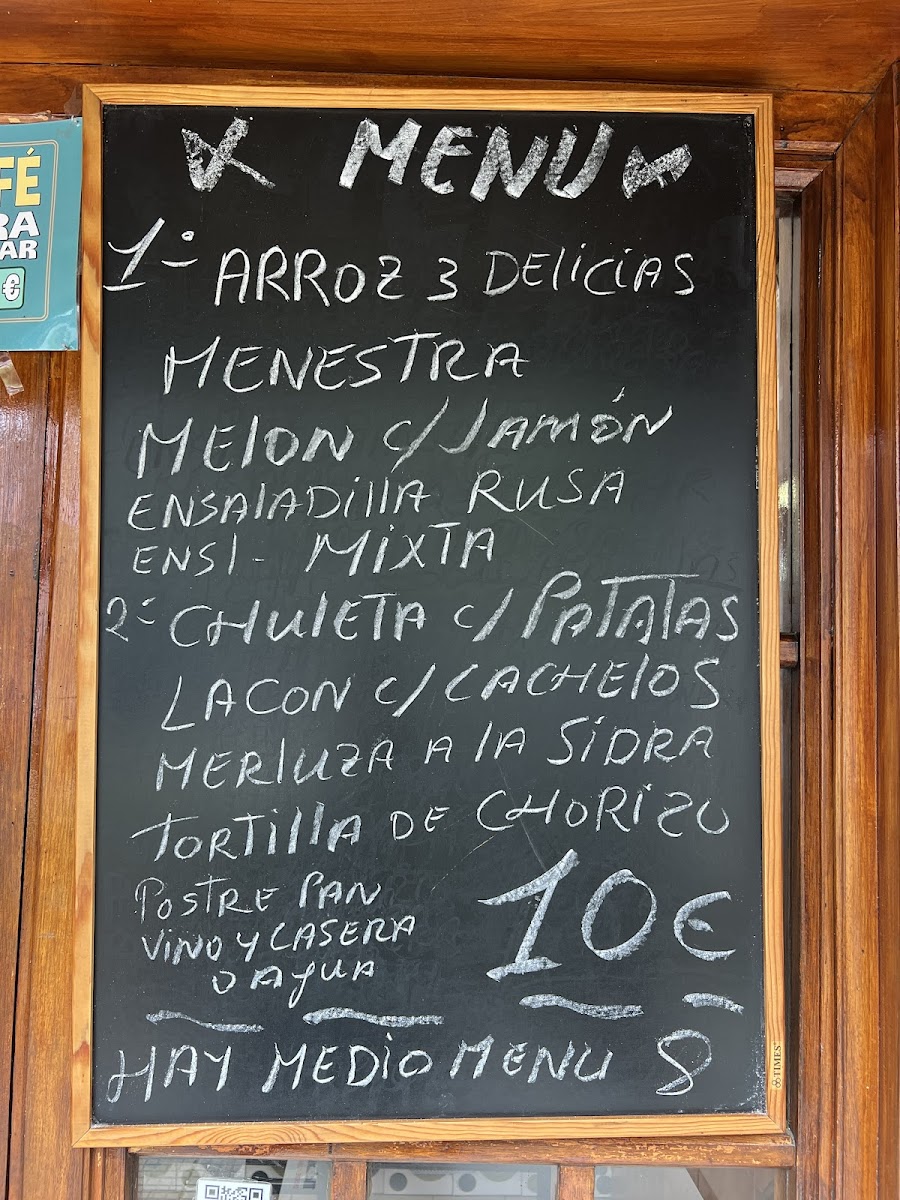 FÉ
RA
AR
€
MENU
1º ARROZ 3 DELICIAS
MENESTRA
MELON C/JAMÓN
ENSALADILLA RUSA
ENSL- MIXTA
2º CHULETA C/PATATAS
LACON C/CACHELOS
MERLUZA A LA SIDRA
TORTILLA DE CHORIZO
POSTRE PAN
VINO Y CASERA
O AGUA
10€
HAY MEDIO MENU 8
TIMES